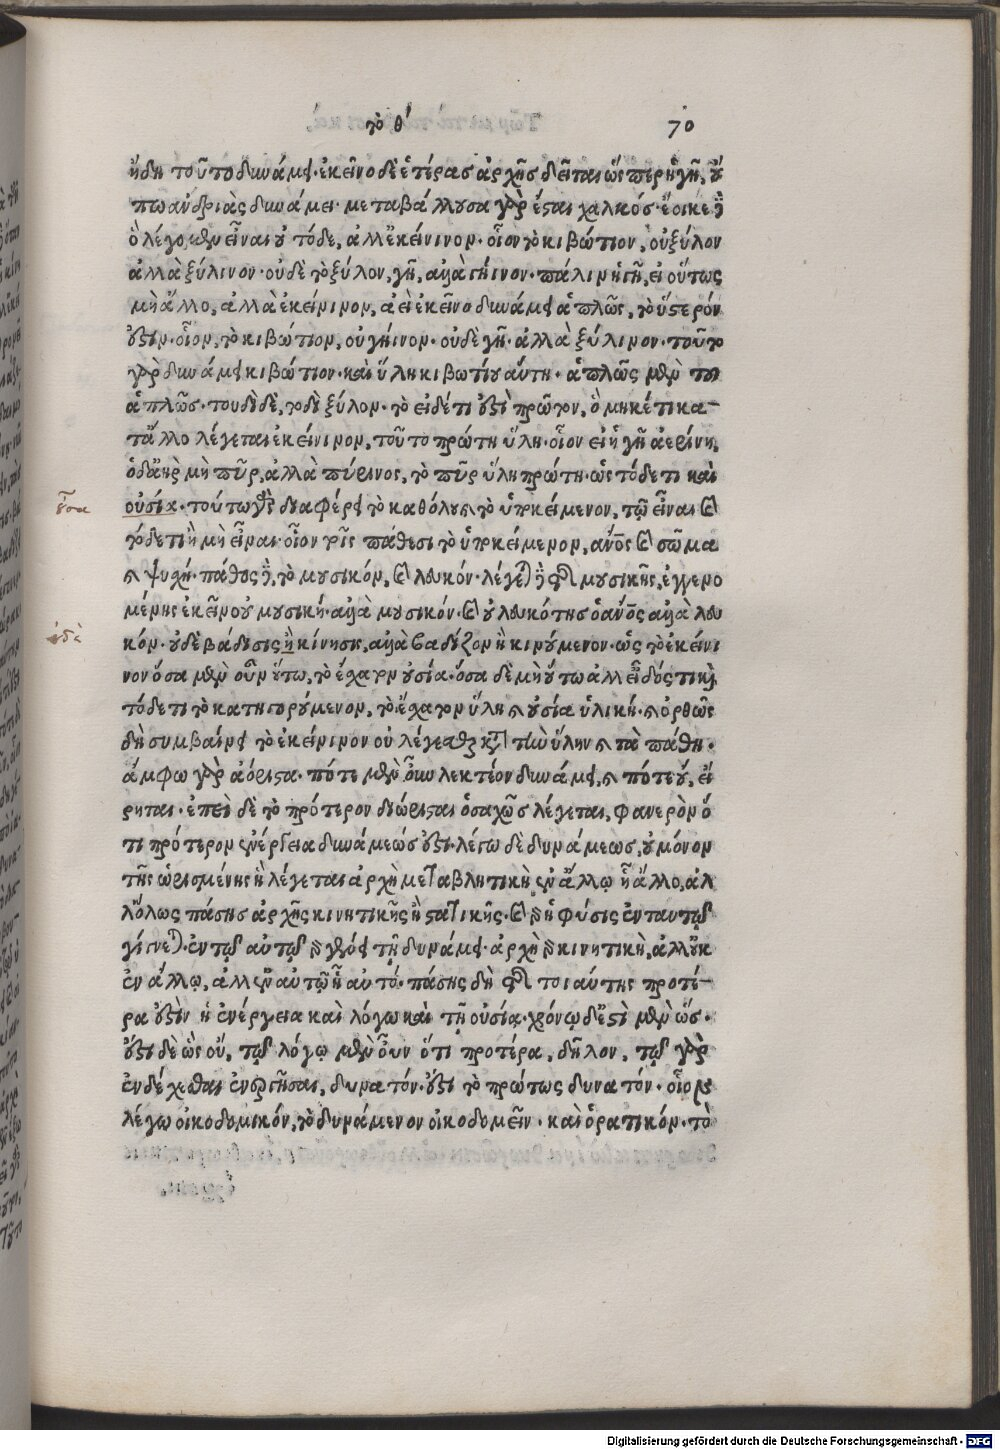 τὸ θ´
70
ἤδη τοῦτο δυνάμει· ἐκεῖνο δὲ ἑτέρας ἀρχῆς δεῖται ὥσπερ ἡ γῆ, οὔ
πω ἀνδριὰς δυνάμει· μεταβάλλουσα γὰρ ἔσται χαλκός· ἔοικε δὲ
ὃ λέγομεν εἶναι οὐ τόδε, ἀλλ' ἐκείνινον· οἷον τὸ κιβώτιον, οὐ ξύλον
ἀλλὰ ξύλινον· οὐδὲ τὸ ξύλον, γῆ, ἀλλὰ γήϊνον· πάλιν ἡ γῆ, εἰ οὕτως
μὴ ἄλλο, ἀλλὰ ἐκείνινον, ἀεὶ ἐκεῖνο δυνάμει ἁπλῶς, τὸ ὕστερόν
ἐστιν· οἷον, τὸ κιβώτιον, οὐ γήινον· οὐδὲ γῆ· ἀλλὰ ξύλινον· τοῦτο
γὰρ δυνάμει κιβώτιον· καὶ ὕλη κιβωτίου αὕτη· ἁπλῶς μὲν τοῦ
ἁπλῶς· τουδὶ δὲ, τοδὶ ξύλον· τὸ εἰ δέ τι ἐστὶ πρῶτον, ὃ μηκέτι κα-
τ' ἄλλο λέγεται ἐκείνινον, τοῦτο πρώτη ὕλη· οἷον εἰ ἡ γῆ ἀερίνη,
ὁ δ' ἀὴρ μὴ πῦρ, ἀλλὰ πύρινος, τὸ πῦρ ὕλη πρώτη· ὡς τόδε τι καὶ
οὐσία· τούτῳ γὰρ διαφέρει τὸ καθόλου καὶ τὸ ὑποκείμενον, τῷ εἶναι
οὖσα
τόδε τι ἢ μὴ εἶναι· οἷον τοῖς πάθεσι τὸ ὑποκείμενον, ἄνος καὶ σῶμα
καὶ ψυχή· πάθος δὲ, τὸ μουσικόν, καὶ λευκόν· λέγεται δὲ τῆς μουσικῆς, ἐγγενο
μένης ἐκεῖνο οὐ μουσική· ἀλλὰ μουσικόν· καὶ οὐ λευκότης ὁ ἄνος ἀλλὰ λευ
κόν· οὐδὲ βάδισις ἢ κίνησις, ἀλλὰ βαδίζον ἢ κινούμενον· ὡς τὸ ἐκείνι
οὐδὲ
νον ὅσα μὲν οὖν οὕτω, τὸ ἔσχατον οὐσία· ὅσα δὲ μὴ οὕτω ἀλλ' εἶδός τι καὶ
τόδε τι τὸ κατηγορούμενον, τὸ ἔσχατον ὕλη καὶ οὐσία ὑλική· καὶ ὀρθῶς
δὴ συμβαίνει τὸ ἐκείνινον οὐ λέγεσθαι κατὰ τὴν ὕλην καὶ τὰ πάθη·
ἄμφω γὰρ ἀόριστα· πότε μὲν οὖν λεκτέον δυνάμει, καὶ πότε οὔ, εἴ
ρηται· ἐπεὶ δὲ τὸ πρότερον διώρισται ὁσαχῶς λέγεται, φανερὸν ὅ
τι πρότερον ἐνέργεια δυνάμεώς ἐστι· λέγω δὲ δυνάμεως, οὐ μόνον
τῆς ὡρισμένης ἢ λέγεται ἀρχὴ μεταβλητικὴ ἐν ἄλλῳ ἢ ἄλλο, ἀλ
λ' ὅλως πάσης ἀρχῆς κινητικῆς ἢ στατικῆς· καὶ γὰρ ἡ φύσις ἐν ταυτῷ
γίγνεται· ἐν τῷ αὐτῷ γὰρ γένει τῇ δυνάμει· ἀρχὴ γὰρ κινητικὴ, ἀλλ' οὐκ
ἐν ἄλλῳ, ἀλλ' ἐν αὐτῷ ᾗ αὐτό· πάσης δὴ τῆς τοιαύτης προτέ-
ρα ἐστὶν ἡ ἐνέργεια καὶ λόγῳ καὶ τῇ οὐσίᾳ· χρόνῳ δ' ἔστι μὲν ὥς·
ἔστι δὲ ὡς οὔ, τῷ λόγῳ μὲν οὖν ὅτι προτέρα, δῆλον, τῷ γὰρ
ἐνδέχεσθαι ἐνεργῆσαι, δυνατόν· ἐστι τὸ πρώτως δυνατόν· οἷον
λέγω οἰκοδομικόν, τὸ δυνάμενον οἰκοδομεῖν· καὶ ὁρατικόν· τὸ
Digitalisierung gefördert durch die Deutsche Forschungsgemeinschaft - DFG